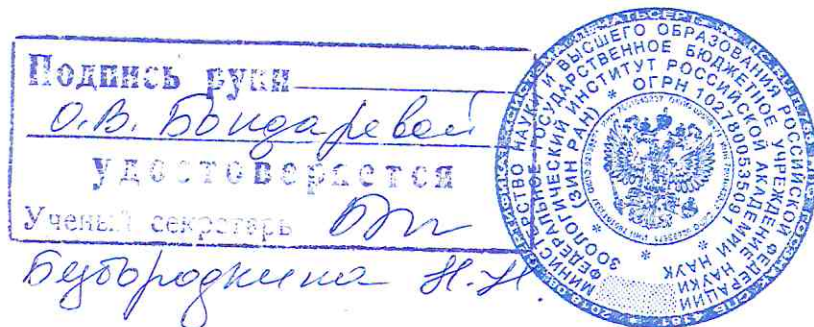 Подпись руки
О.В. Бондаревой
удостоверяется
Ученый секретарь
Н.Н.
МИНИСТЕРСТВО НАУКИ И ВЫСШЕГО ОБРАЗОВАНИЯ РОССИЙСКОЙ ФЕДЕРАЦИИ
ФЕДЕРАЛЬНОЕ ГОСУДАРСТВЕННОЕ БЮДЖЕТНОЕ УЧРЕЖДЕНИЕ НАУКИ
ЗООЛОГИЧЕСКИЙ ИНСТИТУТ РОССИЙСКОЙ АКАДЕМИИ НАУК
(ЗИН РАН) * ОГРН 1027800535091 *